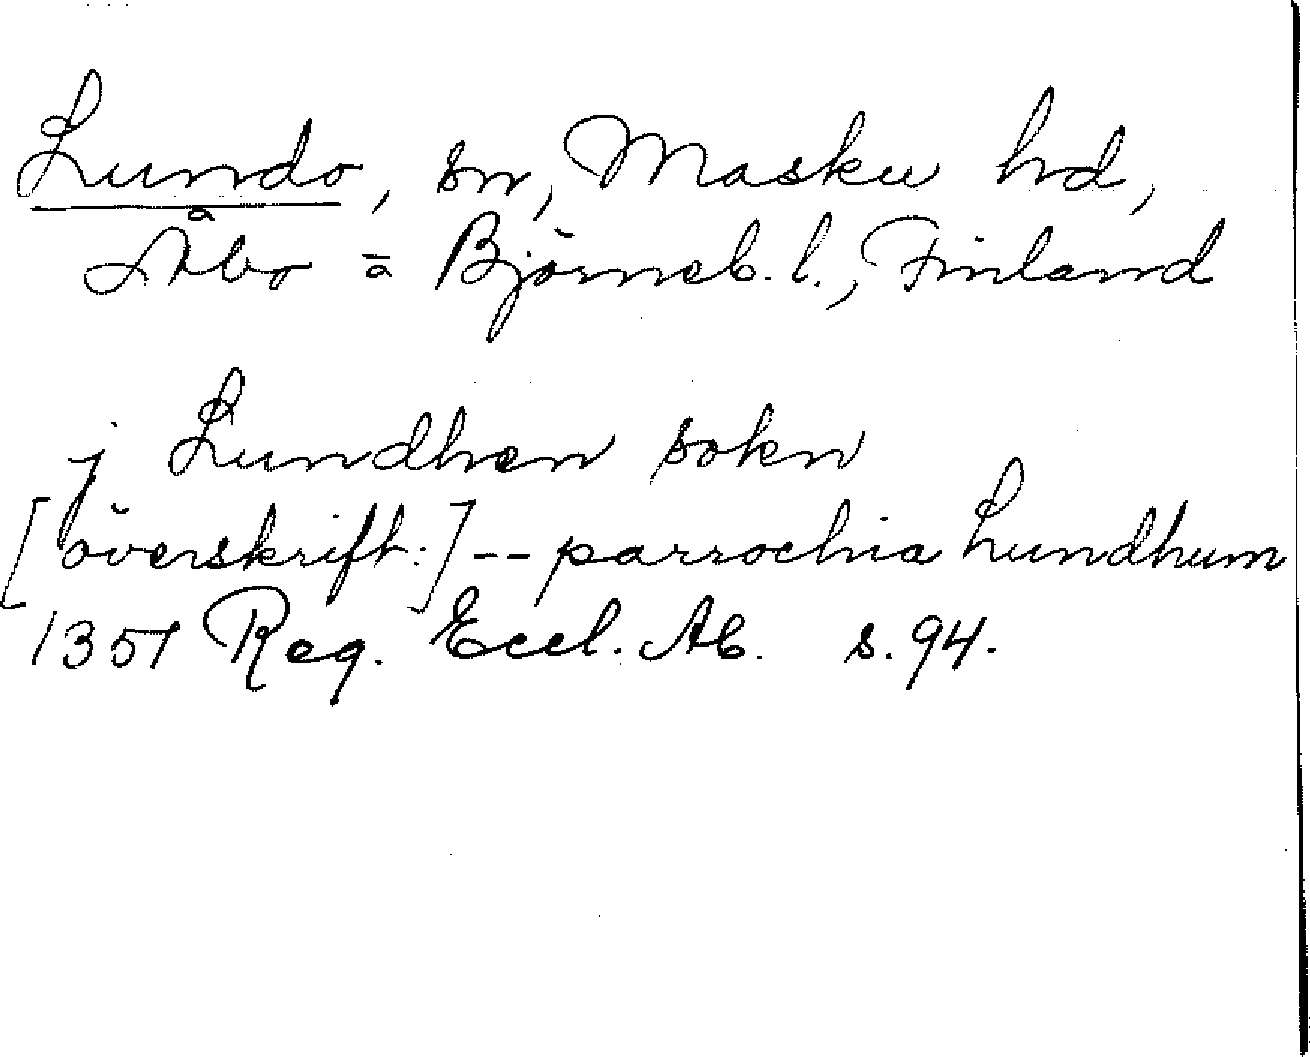 Lundo, sn, Masku hd,
Åbo = Björneb. l., Finland
j Lundhen sokn
[överskrift:] -- parrochia Lundhum
1351 Reg. Eccl. Ab. s. 94.